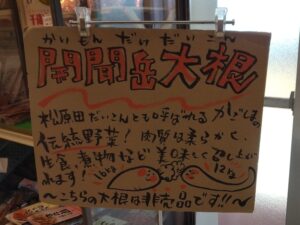 かいもんだけだいこん
開聞岳大根
松原田だいこんとも呼ばれるかごしまの
伝統野菜！肉質は柔らかく、
生食、煮物など美味しく召し上が
れます！
〜こちらの大根は非売品です!!〜